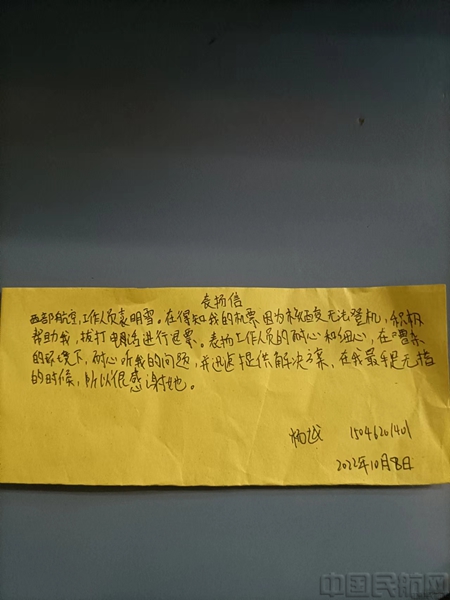 表扬信
西部航空,工作人员袁明雪。在得知我的机票因为核酸无法登机,积极
帮助我,拨打电话进行退票。表扬工作人员的耐心和细心,在嘈杂
的环境下,耐心听我的问题,并迅速提供解决方案,在我最手足无措
的时候,所以很感谢她。
杨越 15046201401
2022年10月8日
中国民航网